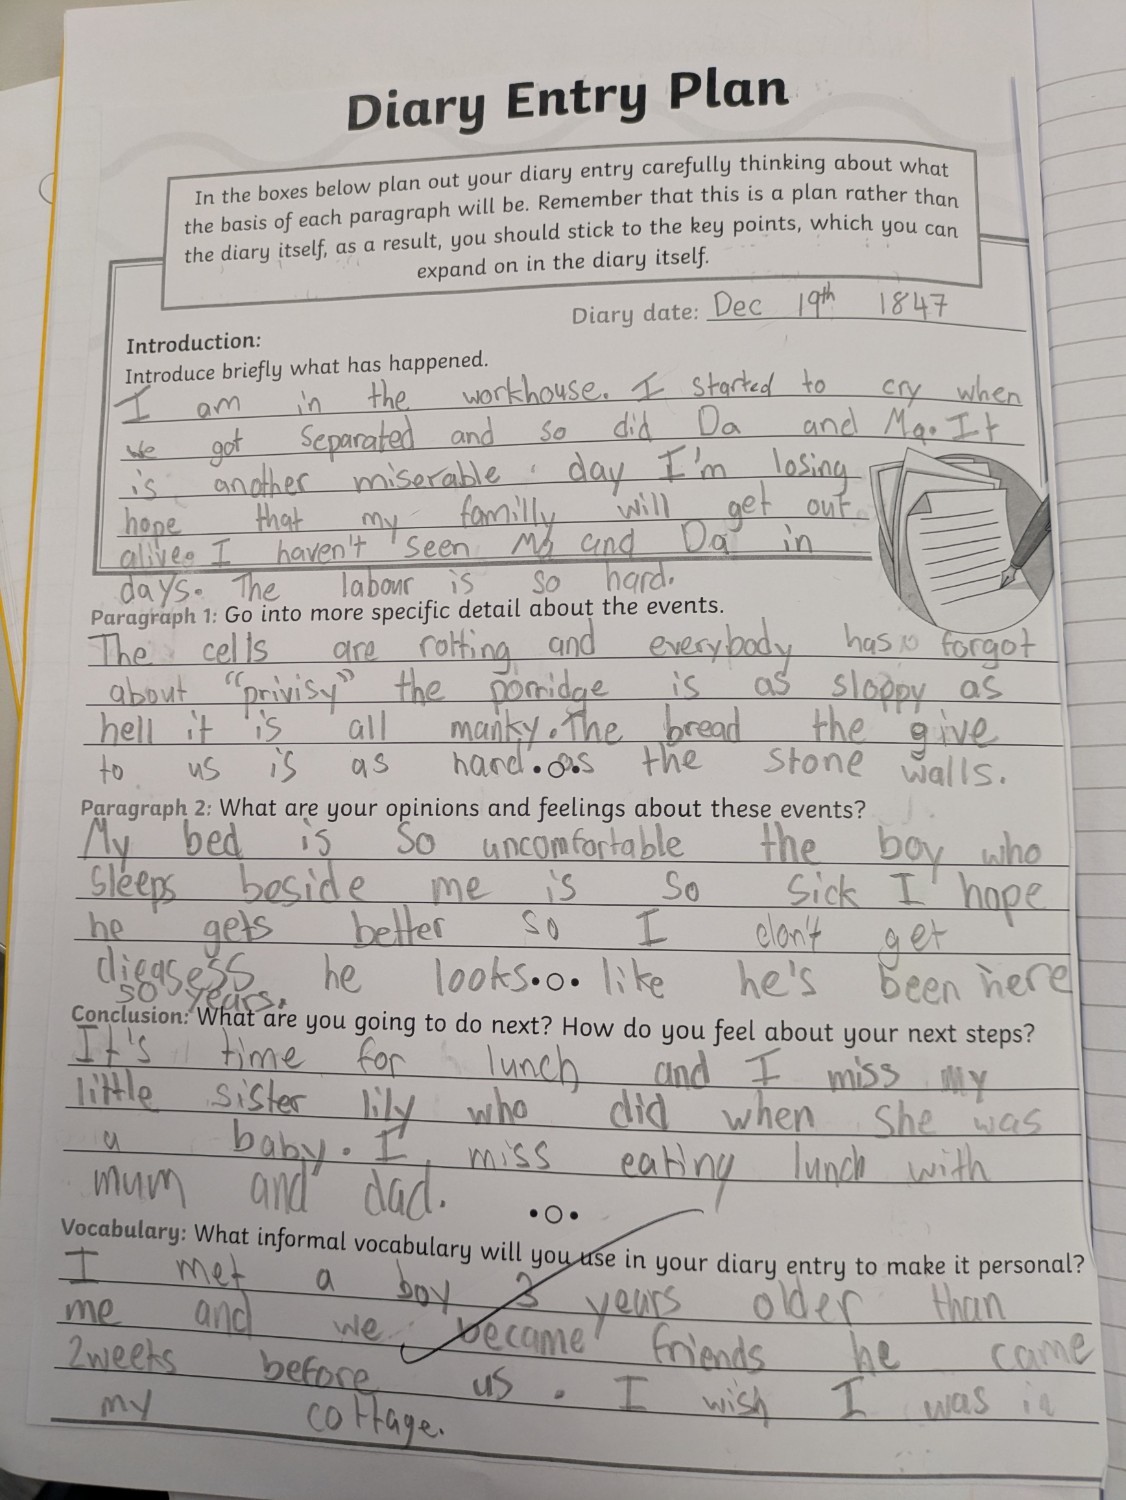 Diary Entry Plan
In the boxes below plan out your diary entry carefully thinking about what
the basis of each paragraph will be. Remember that this is a plan rather than
the diary itself, as a result, you should stick to the key points, which you can
expand on in the diary itself.
Diary date: Dec 19th 1847
Introduction:
Introduce briefly what has happened.
I am in the workhouse. I started to cry when
we got separated and so did Da and Ma. It
is another miserable day I'm losing
hope that my familly will get out
alive. I haven't seen Ma and Da in
days. The labour is so hard.
Paragraph 1: Go into more specific detail about the events.
The cells are rotting and everybody has forgot
about "privisy" the porridge is as sloppy as
hell it is all manky. The bread the give
to us is as hard as the stone walls.
Paragraph 2: What are your opinions and feelings about these events?
My bed is so uncomfortable the boy who
sleeps beside me is so sick I hope
he gets better so I don't get
digasess he looks like he's been here
50 years.
Conclusion: What are you going to do next? How do you feel about your next steps?
It's time for lunch and I miss my
little sister lily who did when she was
a baby. I miss eating lunch with
mum and dad.
Vocabulary: What informal vocabulary will you use in your diary entry to make it personal?
I met a boy 3 years older than
me and we became friends he came
2weeks before us. I wish I was in
my cottage.